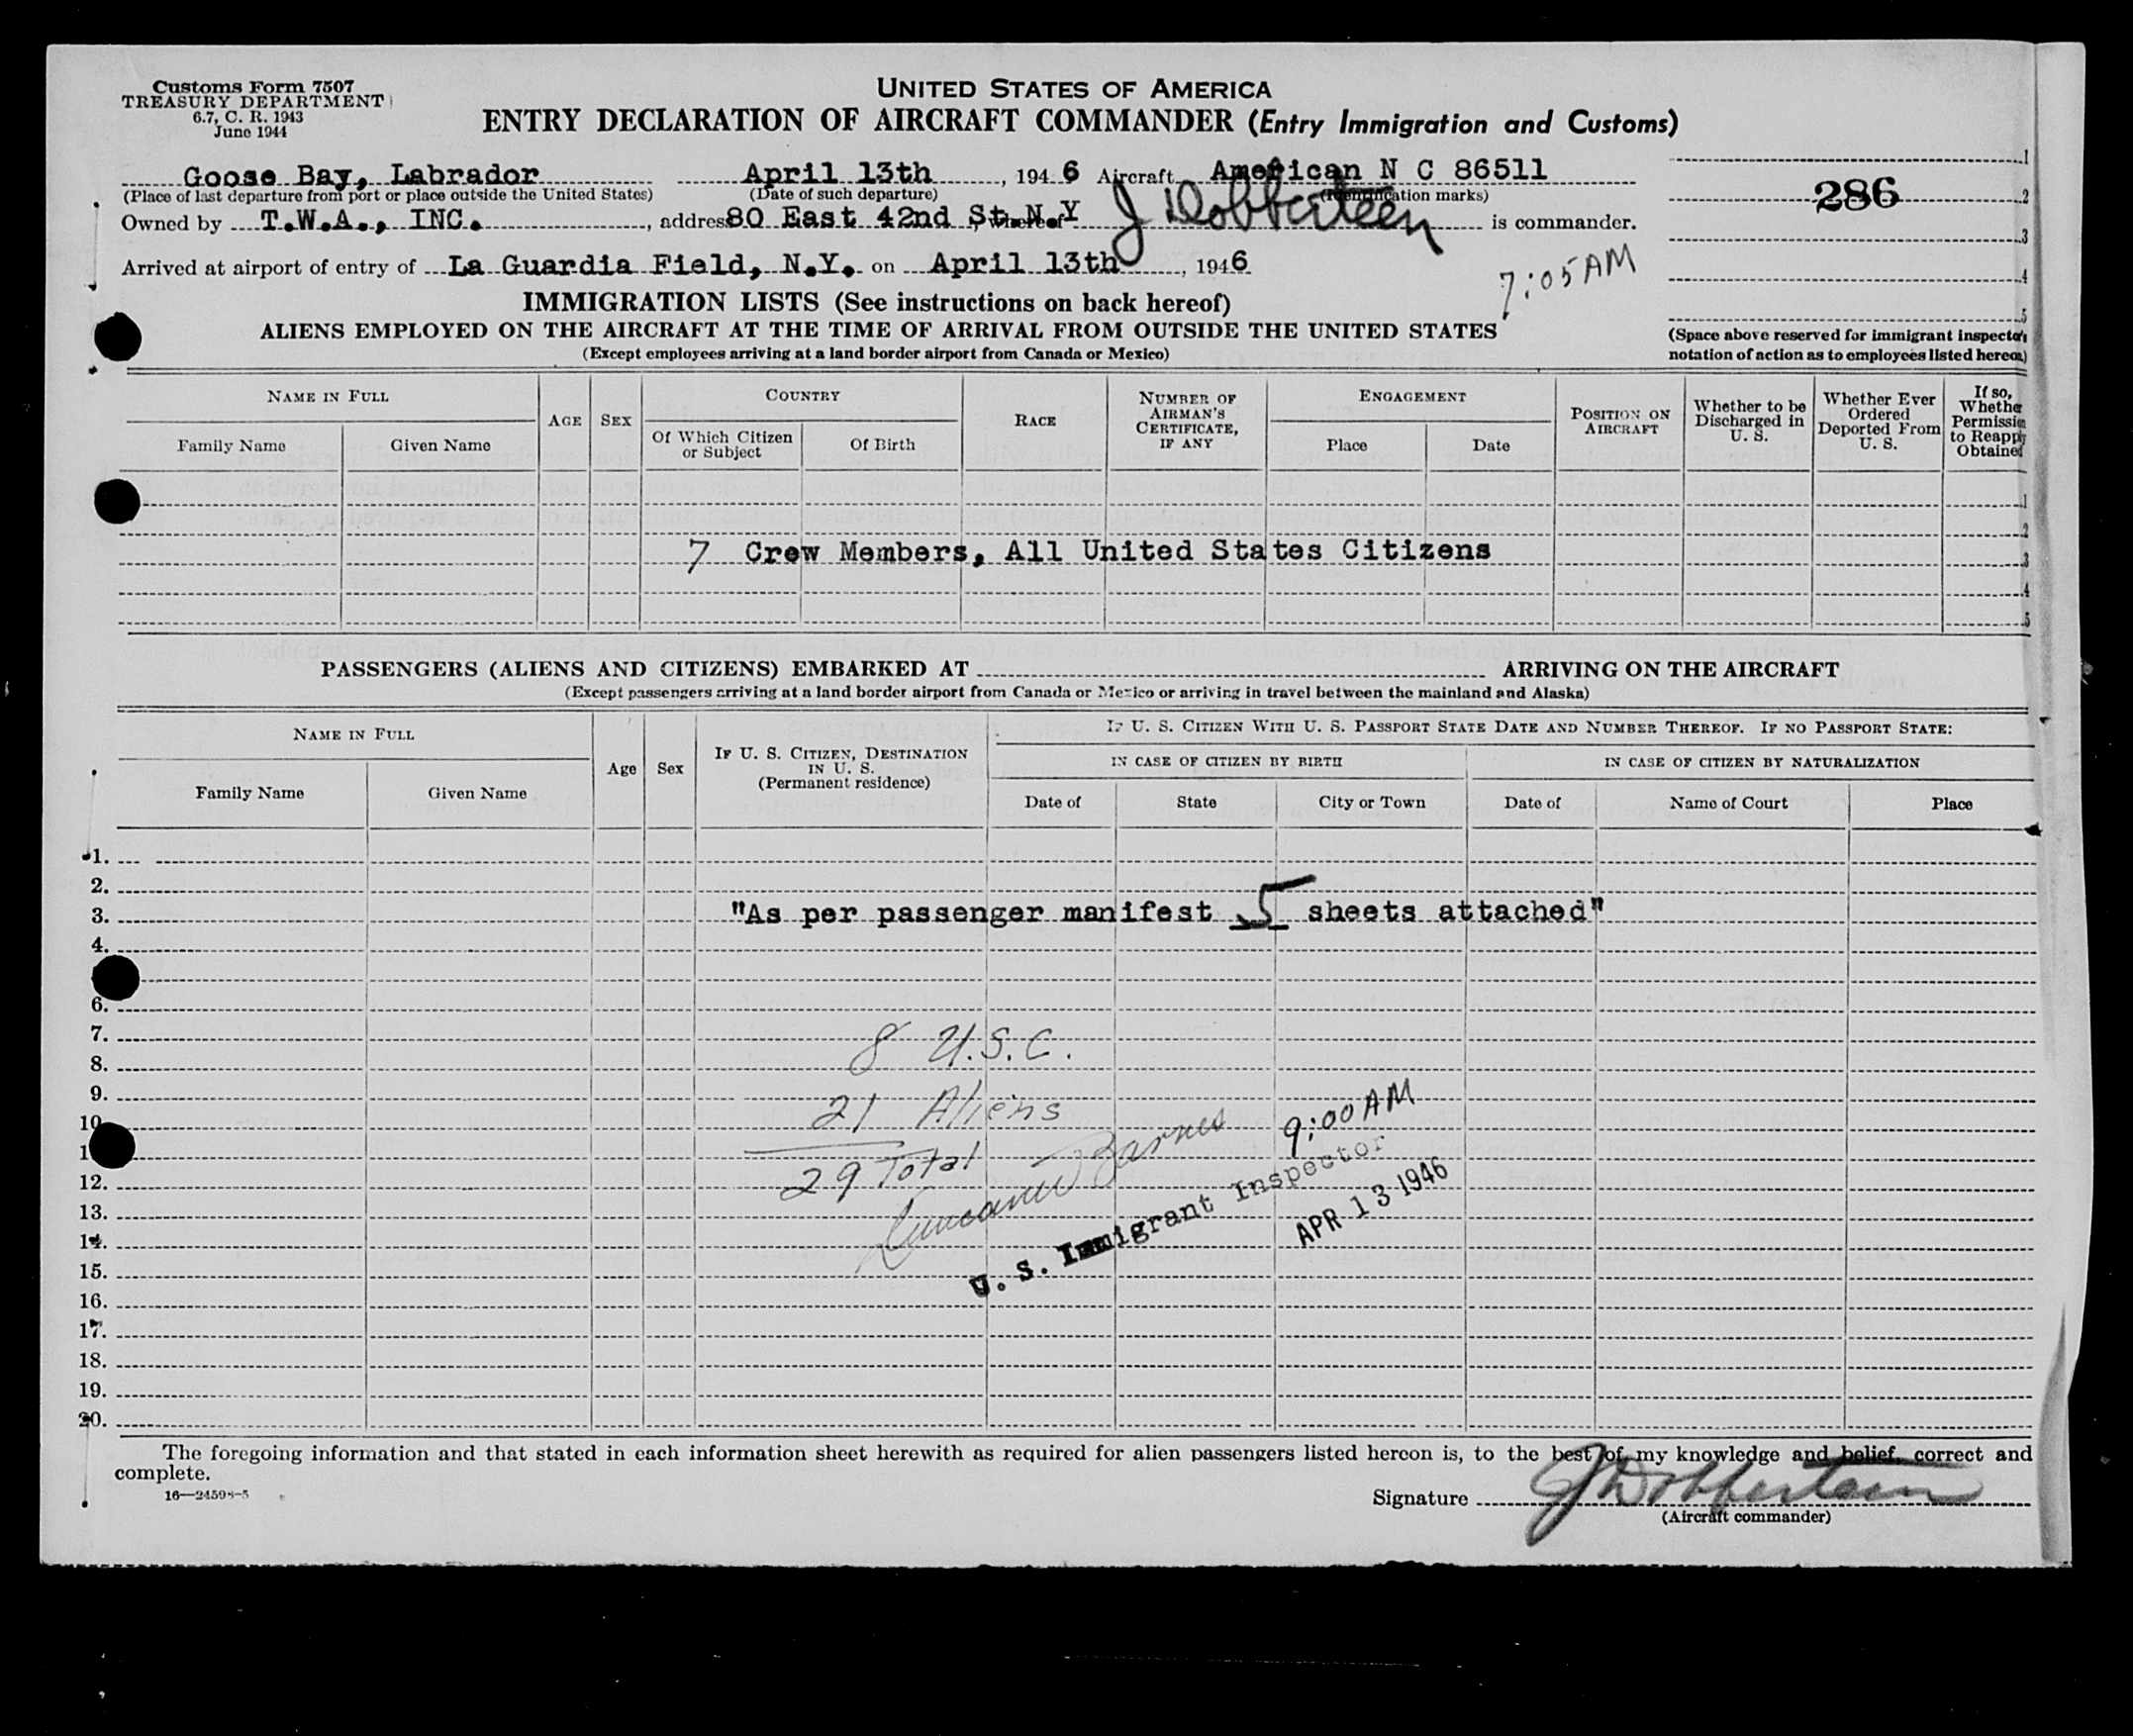 Customs Form 7507
TREASURY DEPARTMENT
6.7, C. R. 1943
June 1944
UNITED STATES OF AMERICA
ENTRY DECLARATION OF AIRCRAFT COMMANDER (Entry Immigration and Customs)
Goose Bay, Labrador April 13th, 1946 Aircraft American N C 86511
(Place of last departure from port or place outside the United States) (Date of such departure) (Identification marks)
Owned by T.W.A., INC., address 80 East 42nd St. N.Y whereof J Dobberteen is commander.
Arrived at airport of entry of La Guardia Field, N.Y. on April 13th, 1946
7:05 AM
1
286
2
3
4
5
(Space above reserved for immigrant inspector's
notation of action as to employees listed hereon)
IMMIGRATION LISTS (See instructions on back hereof)
ALIENS EMPLOYED ON THE AIRCRAFT AT THE TIME OF ARRIVAL FROM OUTSIDE THE UNITED STATES
(Except employees arriving at a land border airport from Canada or Mexico)
NAME IN FULL
Family Name
Given Name
AGE
SEX
COUNTRY
Of Which Citizen
or Subject
Of Birth
RACE
NUMBER OF
AIRMAN'S
CERTIFICATE,
IF ANY
ENGAGEMENT
Place
Date
POSITION ON
AIRCRAFT
Whether to be
Discharged in
U. S.
Whether Ever
Ordered
Deported From
U. S.
If so,
Whether
Permission
to Reapply
Obtained
1
2
7 Crew Members, All United States Citizens
3
4
5
PASSENGERS (ALIENS AND CITIZENS) EMBARKED AT ARRIVING ON THE AIRCRAFT
(Except passengers arriving at a land border airport from Canada or Mexico or arriving in travel between the mainland and Alaska)
NAME IN FULL
Family Name
Given Name
Age
Sex
IF U. S. CITIZEN, DESTINATION
IN U. S.
(Permanent residence)
IF U. S. CITIZEN WITH U. S. PASSPORT STATE DATE AND NUMBER THEREOF. IF NO PASSPORT STATE:
IN CASE OF CITIZEN BY BIRTH
IN CASE OF CITIZEN BY NATURALIZATION
Date of
State
City or Town
Date of
Name of Court
Place
1.
2.
3. "As per passenger manifest 5 sheets attached"
4.
6.
7.
8 U.S.C.
8.
9.
21 Aliens
9:00 AM
10.
1
29 Total
12.
Barnes
U. S. Immigrant Inspector
APR 13 1946
13.
14.
15.
16.
17.
18.
19.
20.
The foregoing information and that stated in each information sheet herewith as required for alien passengers listed hereon is, to the best of my knowledge and belief, correct and
complete.
16—24598-5
Signature J Dobberteen
(Aircraft commander)